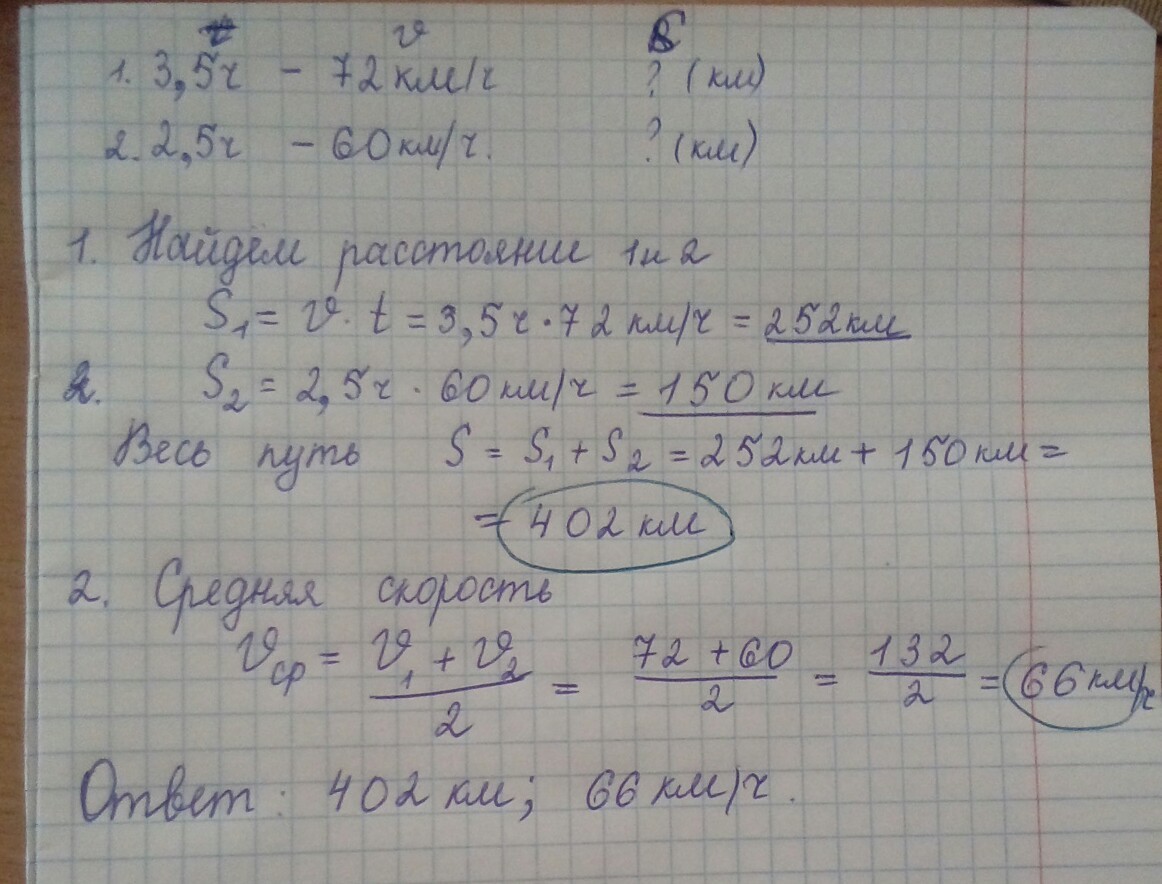 t v S
1. 3,5ч – 72 км/ч ? (км)
2. 2,5ч – 60 км/ч. ? (км)
1. Найдём расстояние 1 и 2
S₁ = v · t = 3,5ч · 72 км/ч = 252 км
2. S₂ = 2,5ч · 60 км/ч = 150 км
Весь путь S = S₁ + S₂ = 252 км + 150 км =
= 402 км
2. Средняя скорость
vср = (v₁ + v₂)/2 = (72 + 60)/2 = 132/2 = 66 км/ч
Ответ: 402 км; 66 км/ч.